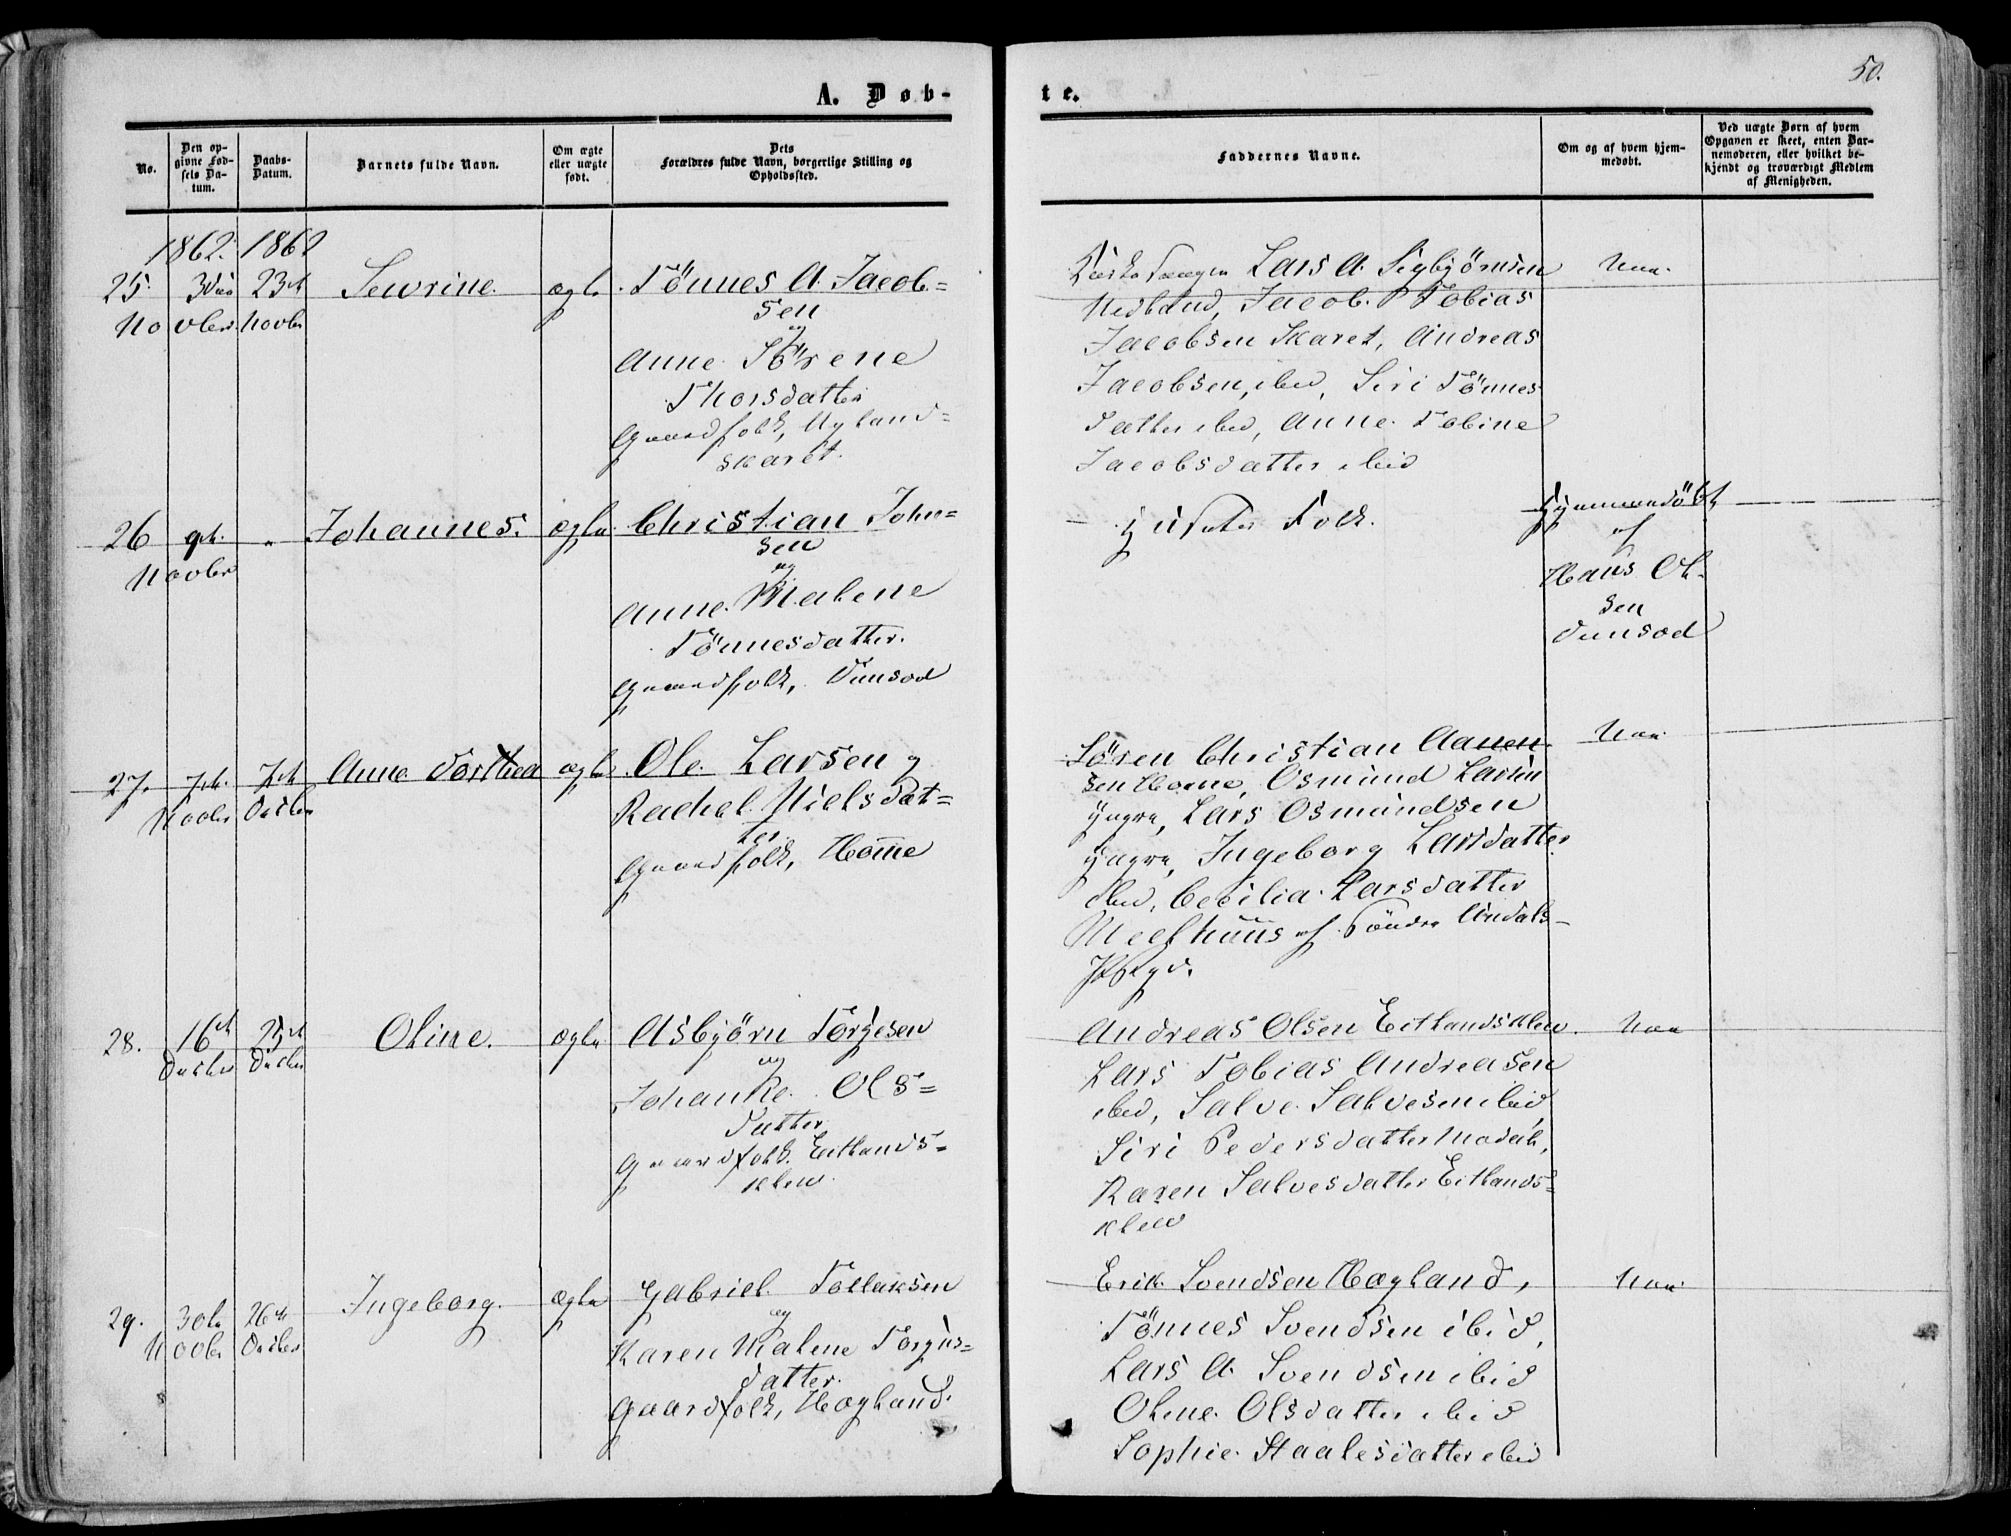 50.
A. Døb-
te.
No.
Den op-
givne Fød-
sels Da-
tum.
Daabs-
Datum.
Barnets fulde Navn.
Om ægte
eller uægte
født.
Dets
Forældres fulde Navn, borgerlige Stilling og
Opholdssted.
Faddernes Navne.
Om og af hvem hjem-
medøbt.
Ved uægte Børn af hvem
Opgaven er skeet, enten Bar-
nemoderen, eller hvilket be-
kjendt og troværdigt Medlem
af Menigheden.
1862. 1862
25. 3die 23de Sevrine. ægte Tönnes A. Jacob=
Novbr. Novbr
sen
og
Anne Sörene
Thorsdatter
Gaardfolk, Nyland=
skaret.
Lars A. Sigbjörnsen
Nedland, Jacob Tobias
Jacobsen Skaret, Andreas
Jacobsen, ibid, Siri Tönnes
Datter ibid, Anne Tobine
Jacobsdatter ibid
Nei.
26 9de " Johannes. ægte Christian John=
Novbr
sen
og
Anne Malene
Tönnesdatter.
Gaardfolk, Dunsæd
Folk.
Hjemmedöbt
af
Hans Ol-
sen
Dunsæd
27. 7de 7de Anne Dorthea ægte Ole Larsen og
Novbr Decbr
Rachel Nielsdat=
ter.
Gaardfolk, Homme
Sören Christian Aanen
sen Homme, Osmund Larsen
Yngre, Lars Osmundsen
Yngre, Ingeborg Larsdatter
ibid, Cecilia Larsdatter
Meelhuus af Söndre Undals-
Præstgd.
Nei
28. 16de 25de Oline. ægte Asbjörn Torjesen
Octbr Decbr
og
Johanne Ols=
datter
Gaardfolk Eitlands=
klev.
Andreas Olsen Eitlandsklev.
Lars Tobias Andreasen
ibid, Salve Salvesen ibid
Siri Pedersdatter
Karen Salvesdatter Eitlands=
klev
Nei
29. 30te 26de Ingeborg. ægte Gabriel Tollaksen
Novbr Decbr
og
Karen Malene Torjus=
datter.
Gaardfolk, Høyland.
Erik Svendsen Høyland,
Tönnes Svendsen ibid,
Lars A. Svendsen ibid
Oline Olsdatter ibid
Sophie Staalesdatter ibid
Nei